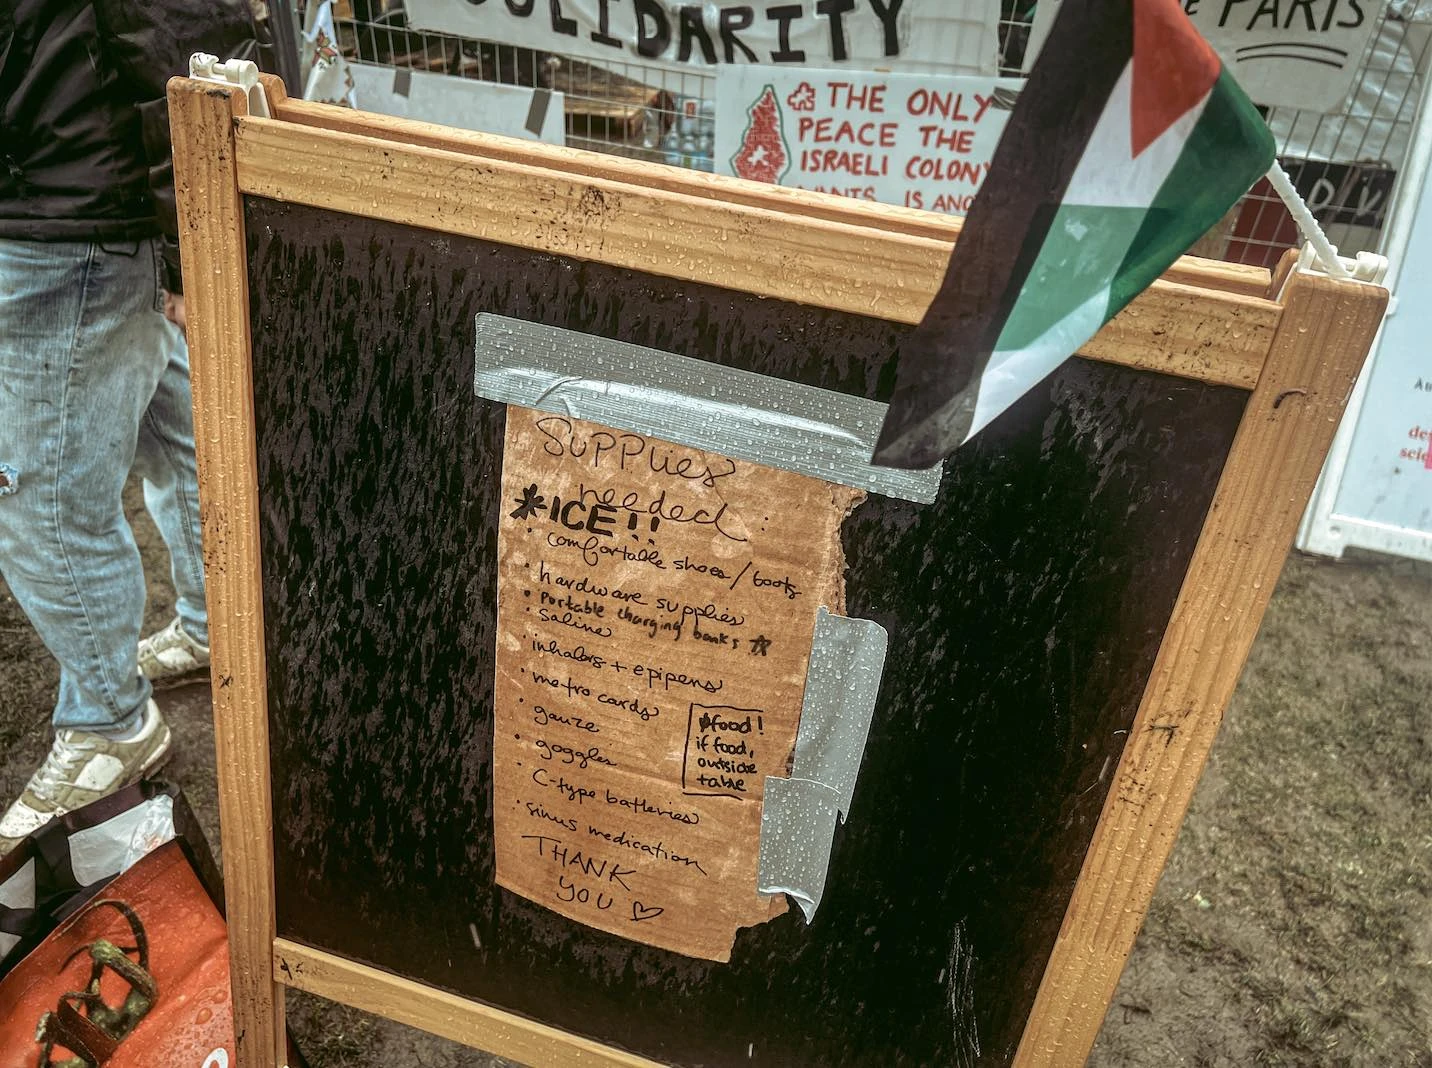 SOLIDARITY
PARIS
THE ONLY
PEACE THE
ISRAELI COLONY
WANTS IS
Supplies
needed:
*ICE!!
· comfortable shoes/boots
· hardware supplies
· Portable charging banks ☆
· saline
· inhalers + epipens
· metro cards
· gauze
· goggles
· C-type batteries
· sinus medication
THANK
YOU ♡
*food!
if food,
outside
table